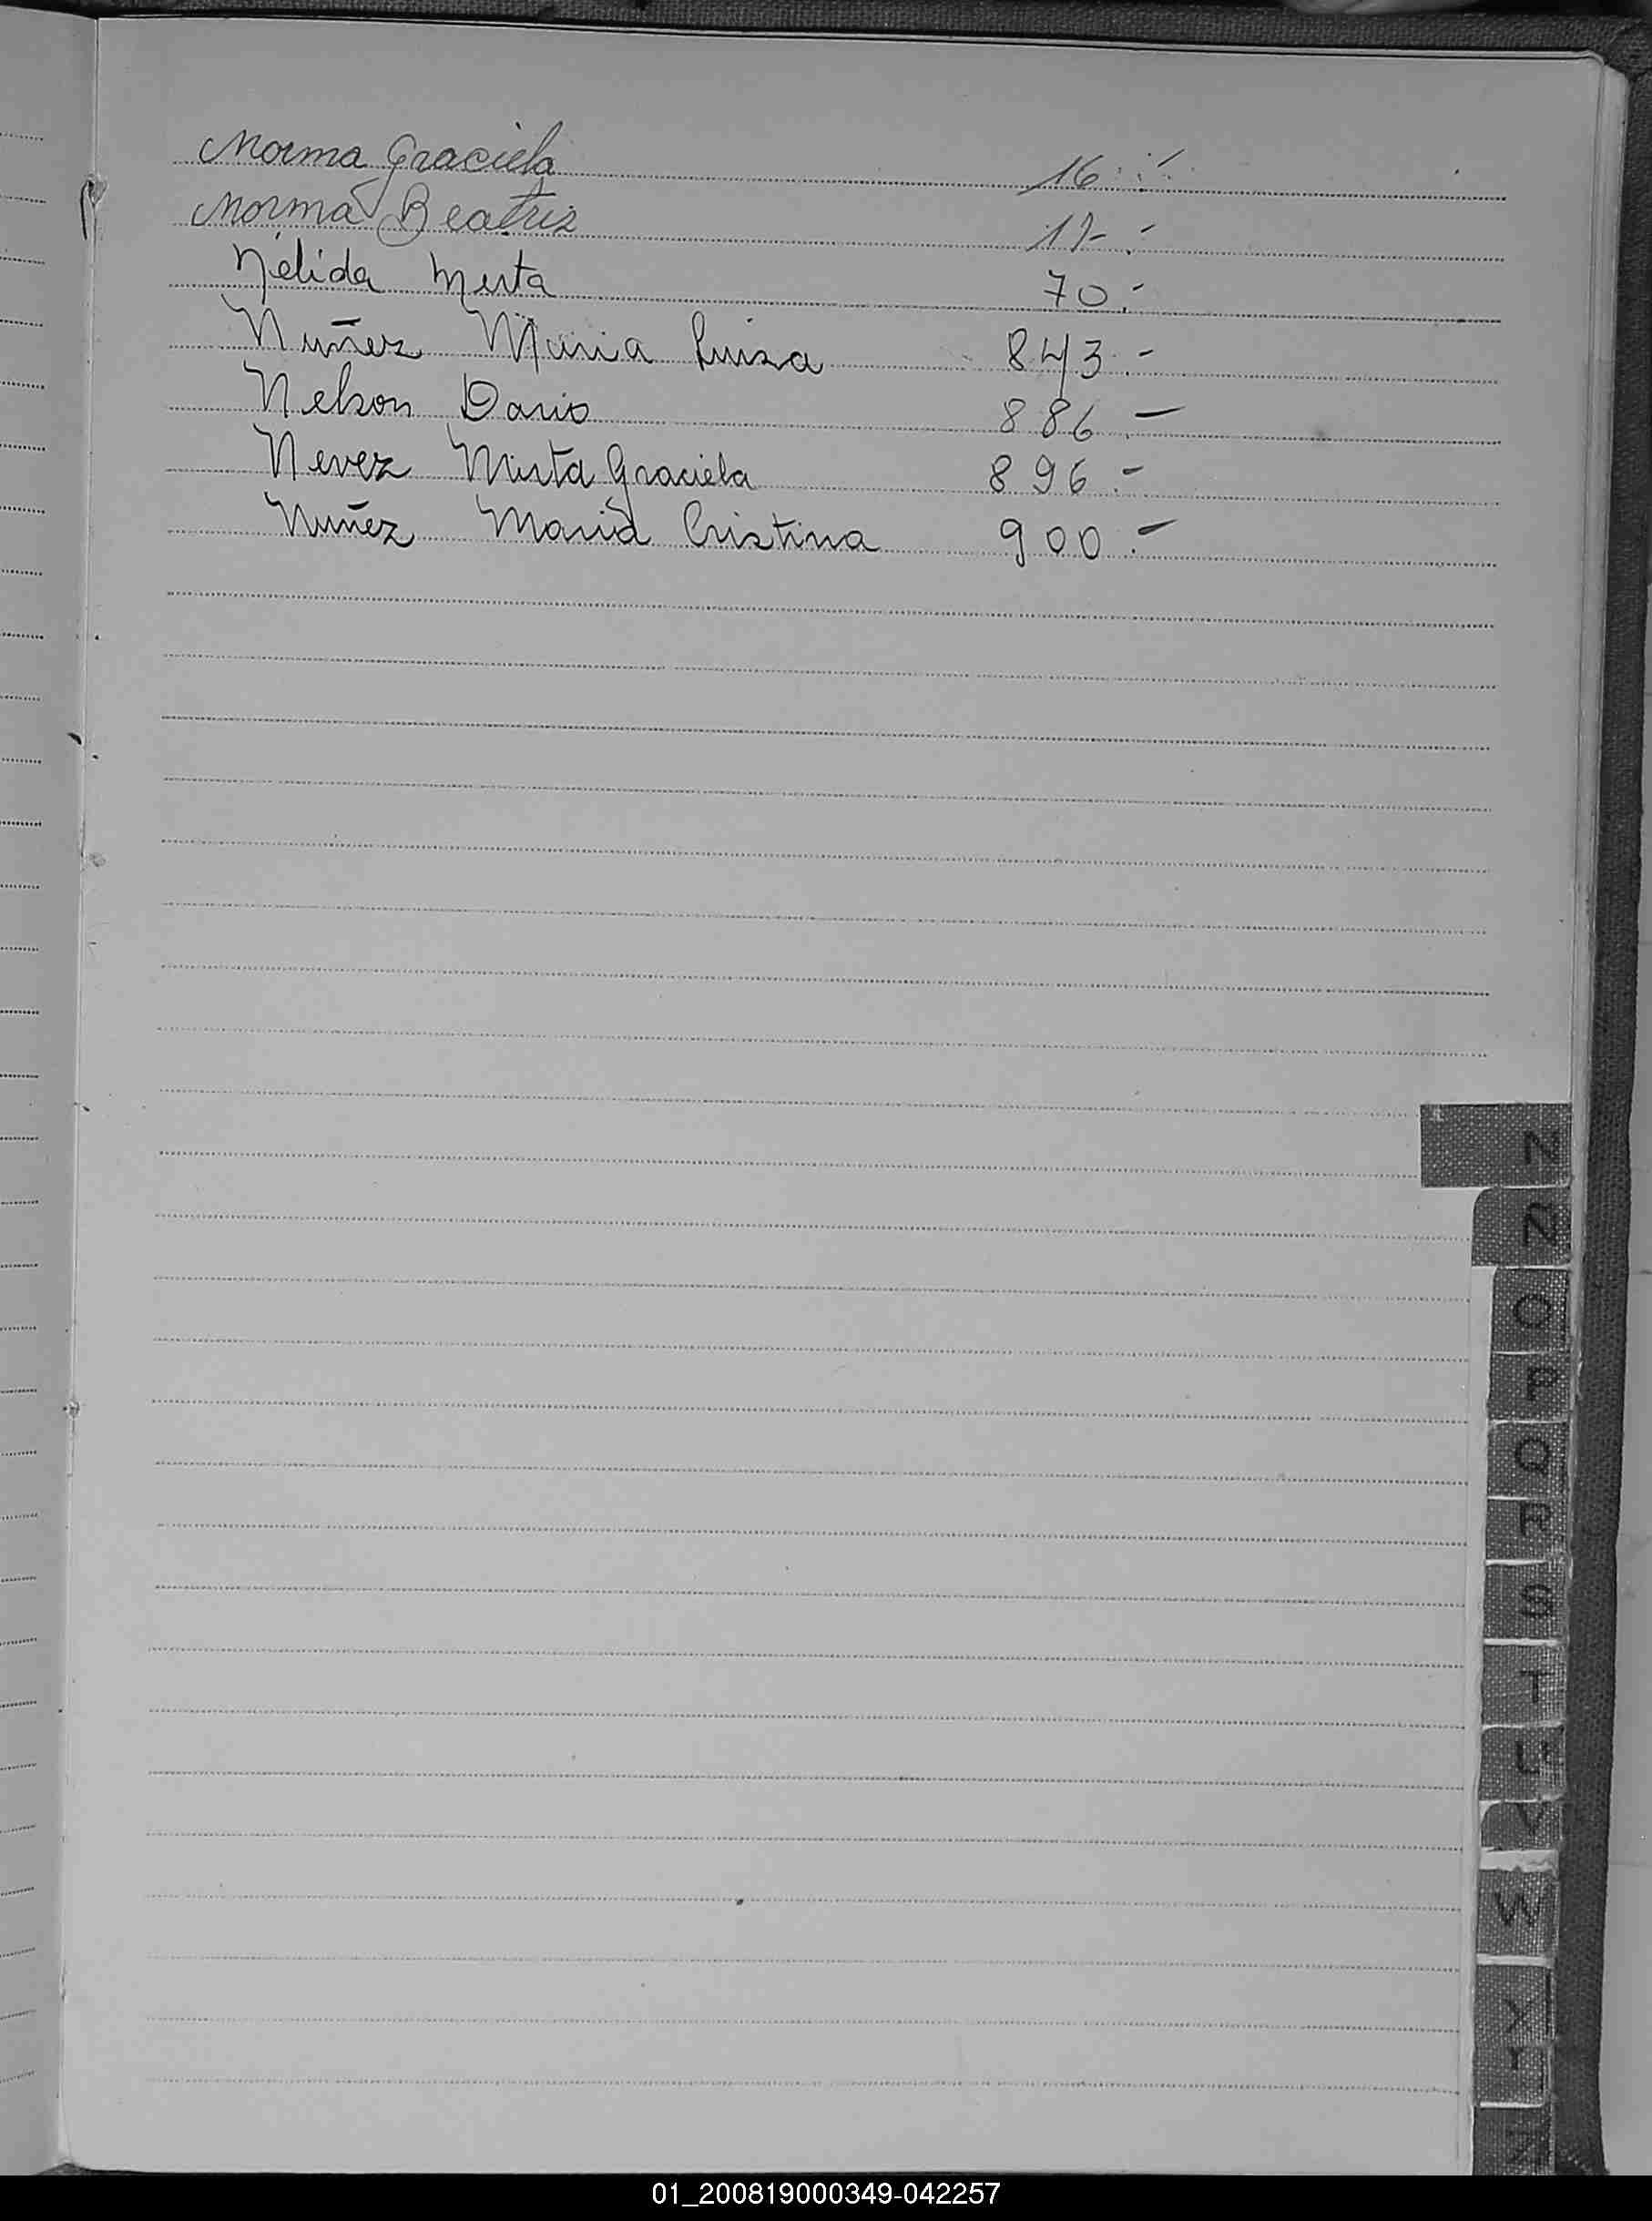 Norma Graciela 16.-
Norma Beatriz 17.-
Nélida Mirta 70.-
Nuñez Maria Luisa 843.-
Nelson Dario 886.-
Nevez Mirta Graciela 896.-
Nuñez Maria Cristina 900.-
N
Ñ
O
P
Q
R
S
T
U
V
W
X
Y
Z
01_200819000349-042257